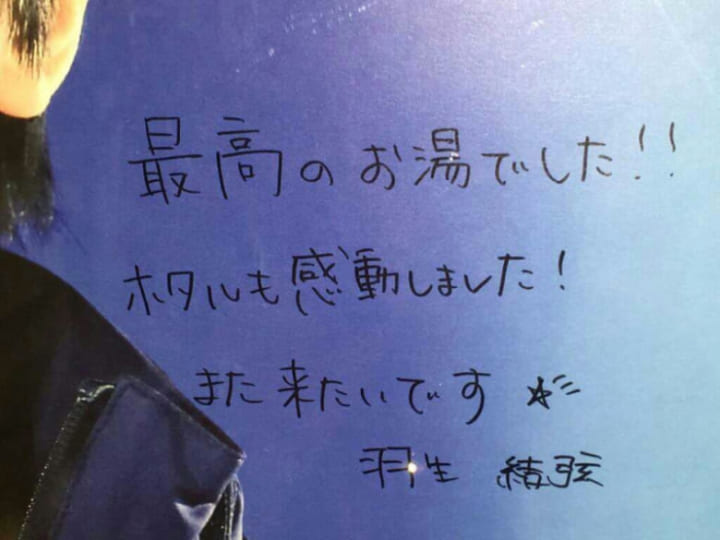 最高のお湯でした!!
ホタルも感動しました!
また来たいです☆彡
羽生 結弦